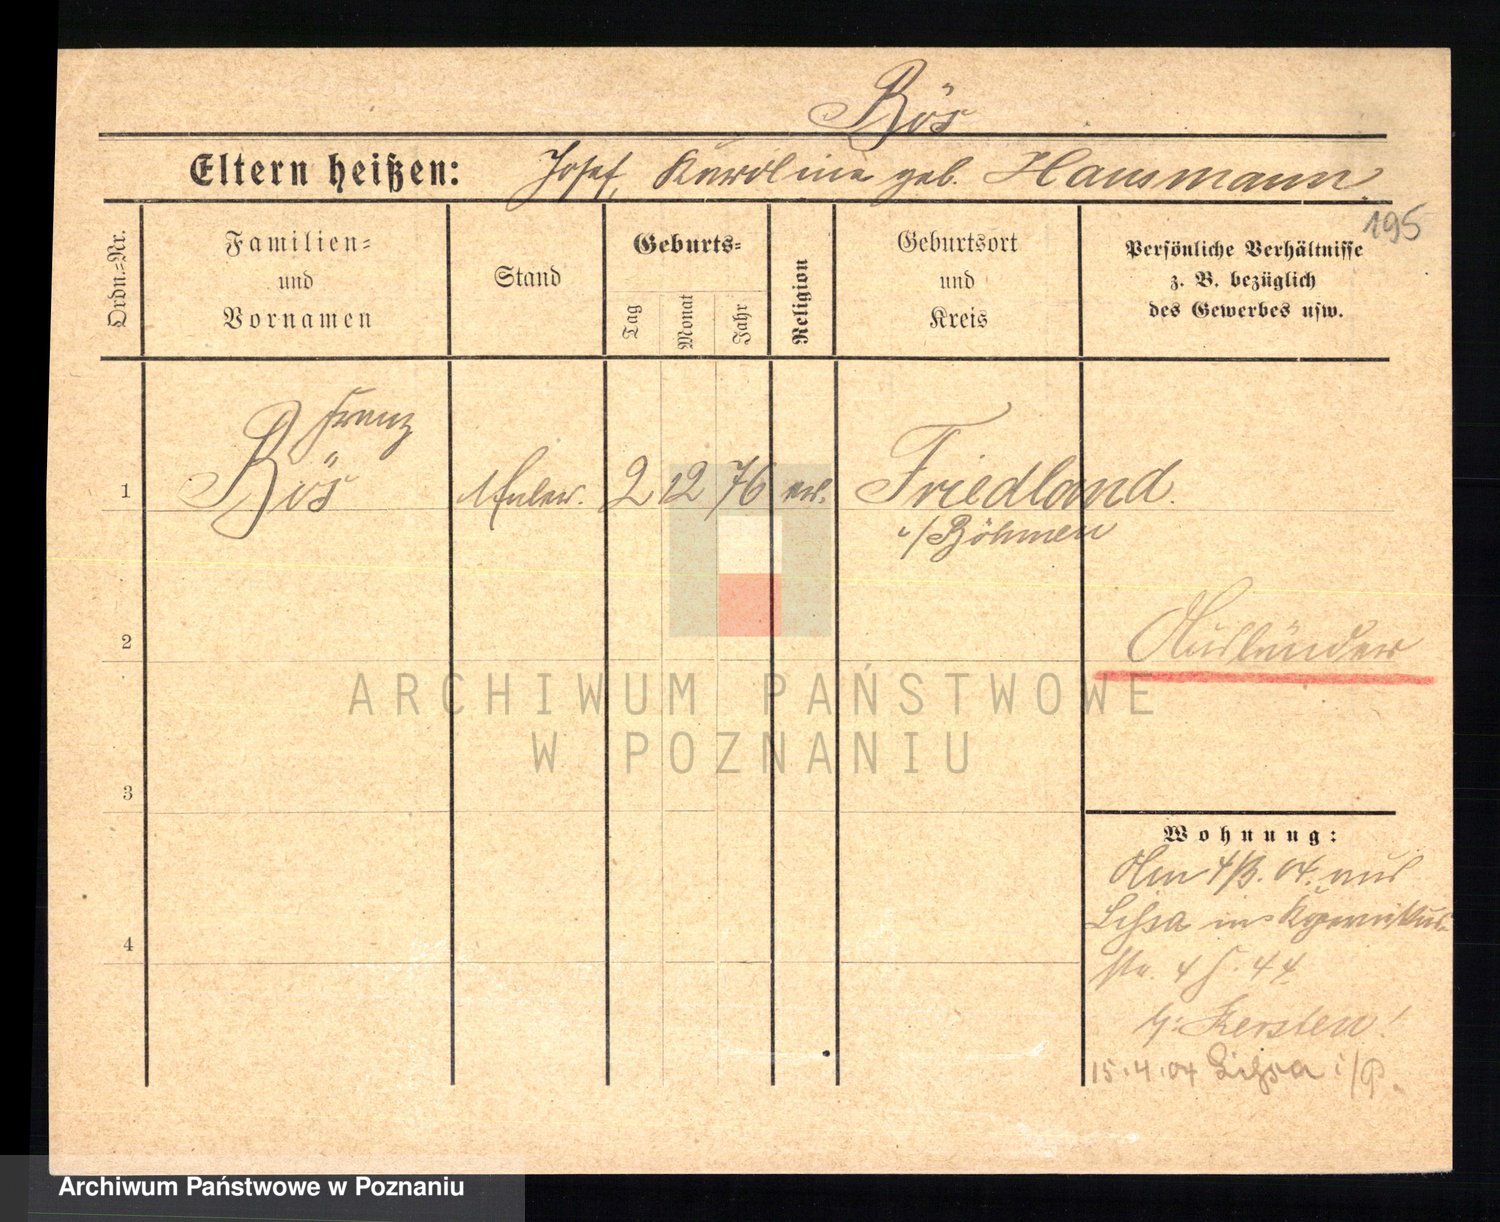 Bös
Eltern heißen: Josef, Karoline geb. Hausmann
195
Ordn.=Nr.
Familien=
und
Vornamen
Stand
Geburts=
Tag
Monat
Jahr
Religion
Geburtsort
und
Kreis
Persönliche Verhältnisse
z. B. bezüglich
des Gewerbes usw.
Franz
1 Bös Maler. 2 12 76 Friedland.
i/Böhmen
2 Ausländer
ARCHIWUM PAŃSTWOWE
W POZNANIU
3
Wohnung:
Am 4/3. 04. aus
Lissa in Kopernikus
str. 4
4
b: Kersten!
15.4.04 Lissa i/P.
Archiwum Państwowe w Poznaniu